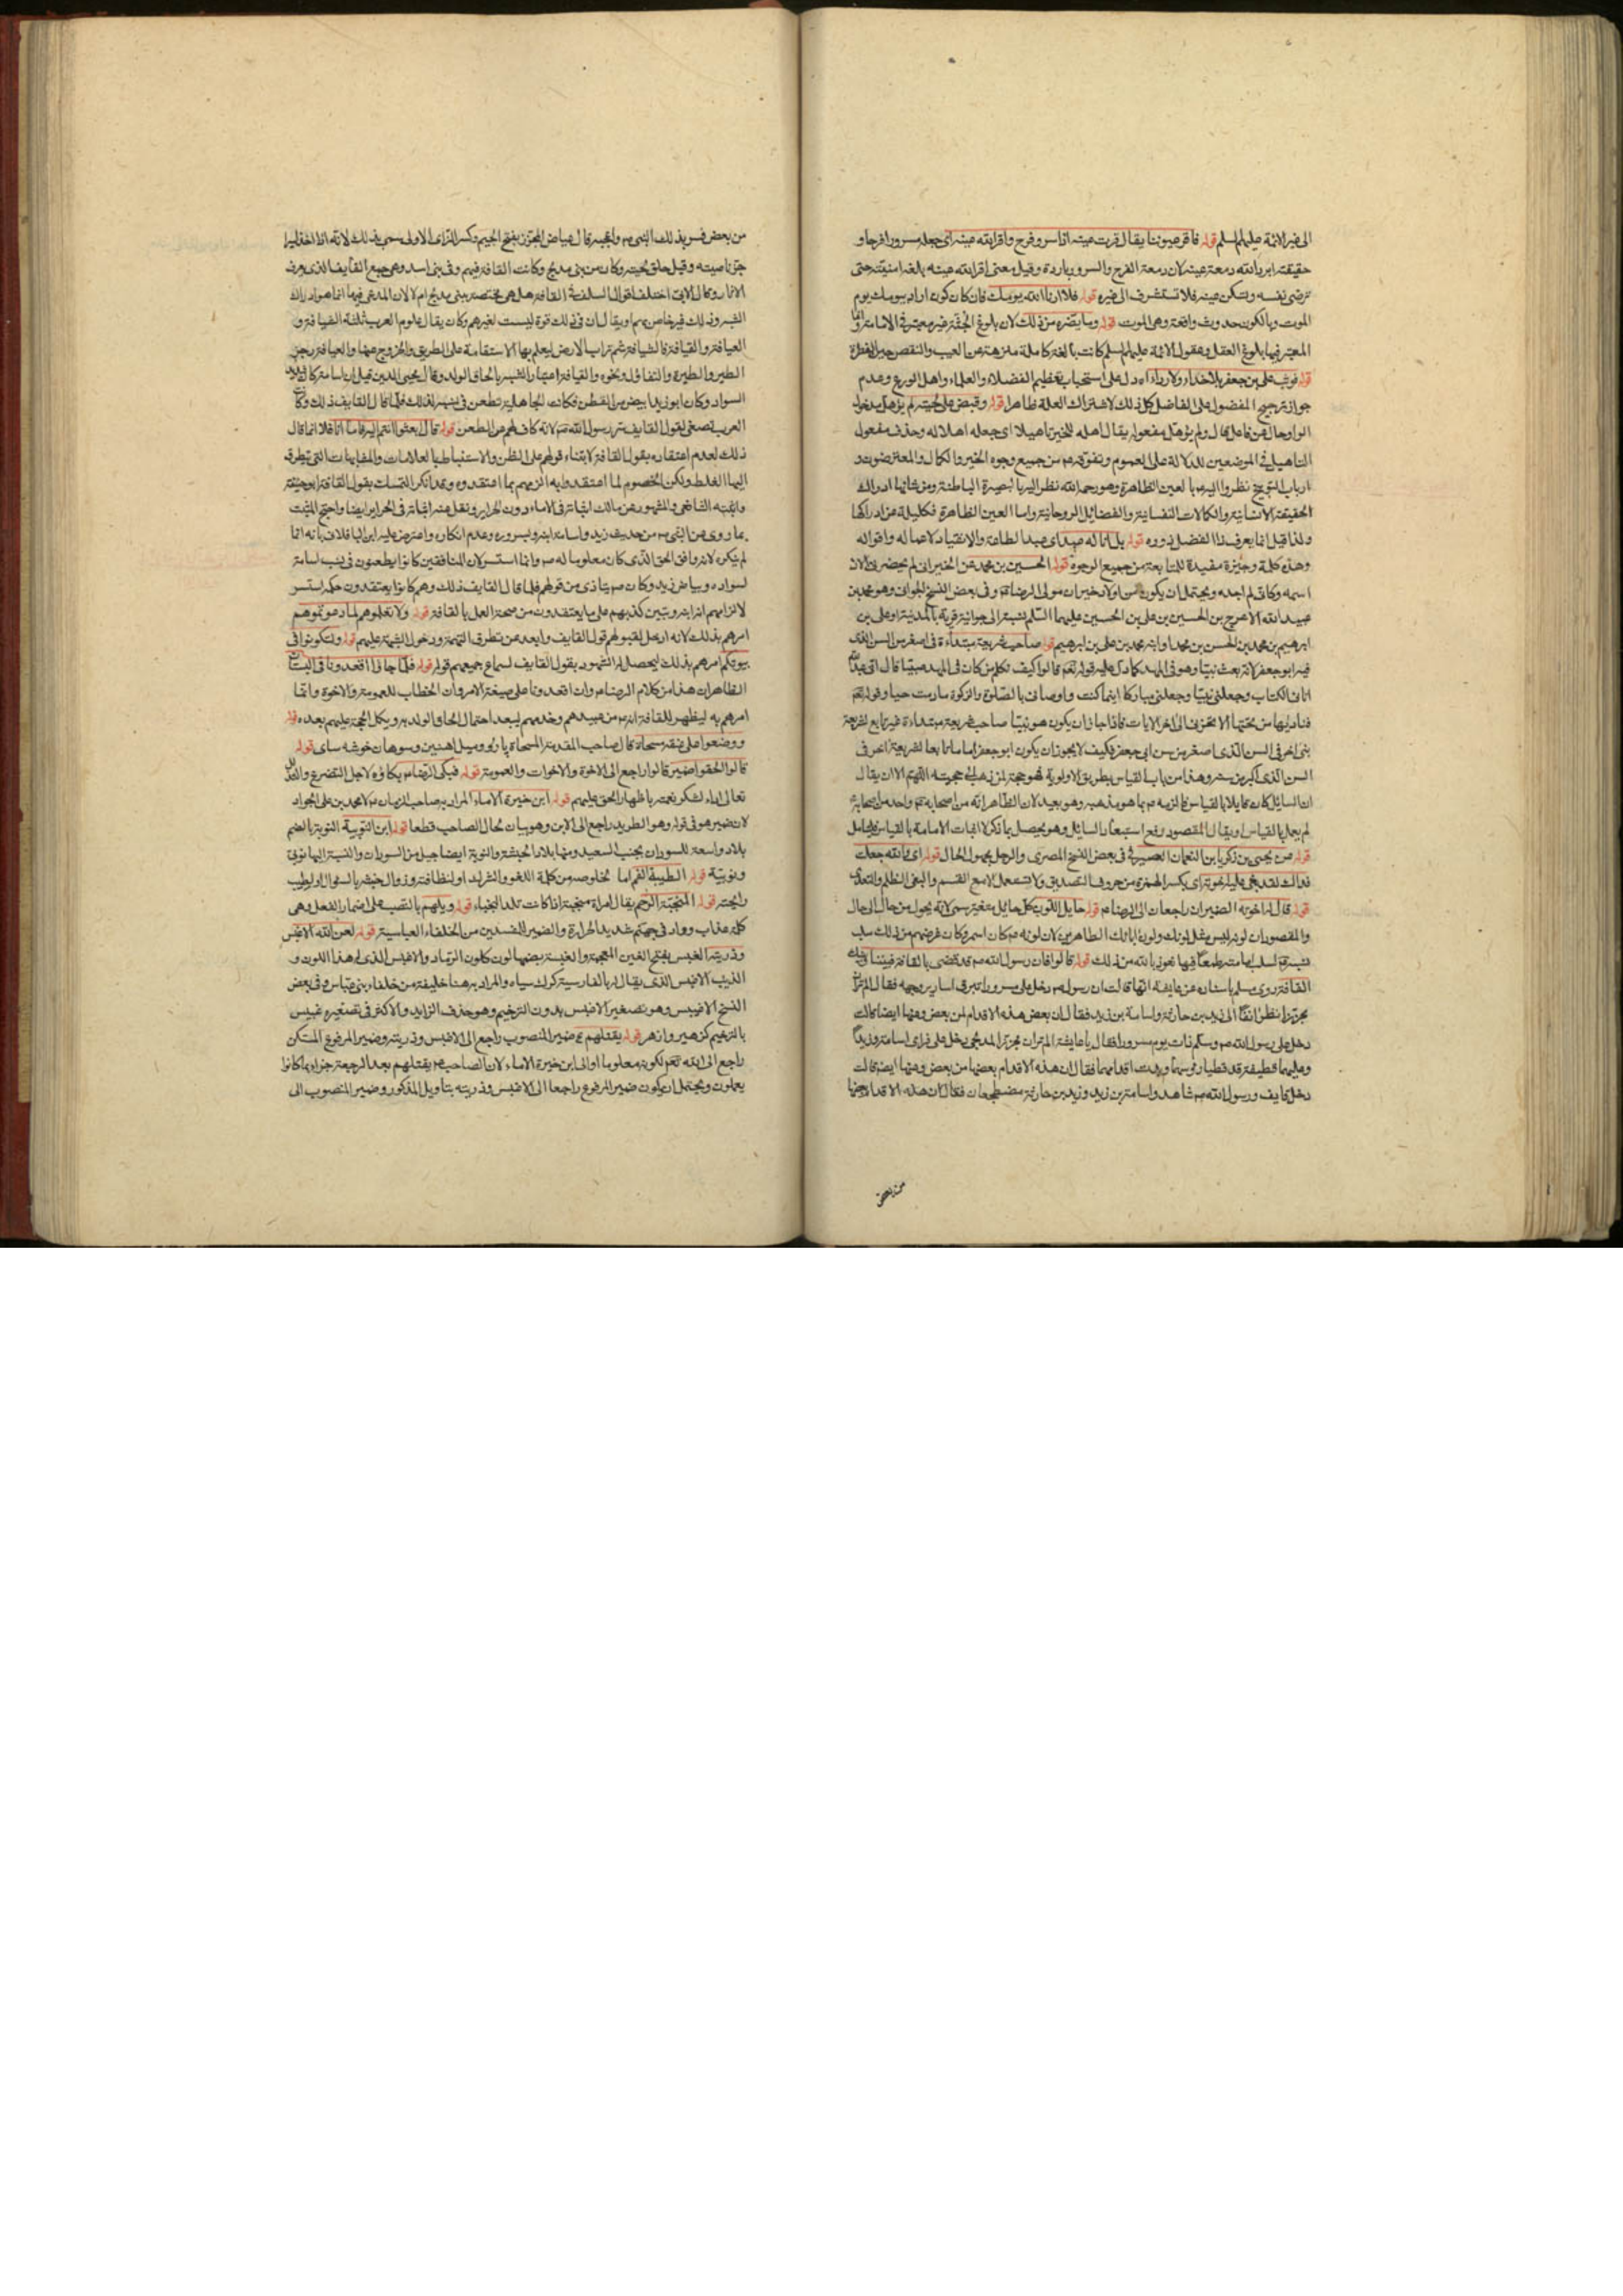 الى غير الائمة عليهم السلم قوله فاقر عيوننا يقال قرت عينه اذا سر وفرح واقر الله عينه اى جعله مسرورا فرحا و
حقيقته ابرد الله دمعة عينه لان دمعة الفرح والسرور باردة وقيل معنى اقر الله عينه بلغه امنيته حتى
ترضى نفسه وتسكن عينه فلا تستشرف الى غيره قوله فلا ارانا الله يومك فان كان كون اراد بيومك يوم
الموت وبالكون حدوث واقعة وهى الموت قوله وما يضره من ذلك لان بلوغ الجثة غير معتبر فى الامامة وانما
المعتبر فيها بلوغ العقل وعقول الائمة عليهم السلم كانت بالغة كاملة منزهة عن العيب والنقص حين الفطرة
قوله فوثب على بن جعفر بلا حذاء ولا رداء اه دل على استحباب تعظيم الفضلاء والعلماء واهل الورع وعدم
جواز ترجيح المفضول على الفاضل كل ذلك لاشتراك العلة ظاهرا قوله وقبض على لحيته لم يؤهل مدخول
الواو حال عن فاعل قال ولم يؤهل مفعوله يقال اهله للخير تاهيلا اى جعله اهلا له وحذف مفعول
التاهيل فى الموضعين للدلالة على العموم وتفوقه عم من جميع وجوه الخير والكمال والمعترضون
ارباب التوبيخ نظروا اليه بالعين الظاهرة وهو رحمه الله نظر اليه بالبصيرة الباطنة ومن شانها ادراك
الحقيقة الانسانية والكمالات النفسانية والفضائل الروحانية واما العين الظاهرة فكليلة عن ادراكها
ولذا قيل انما يعرف ذا الفضل ذووه قوله بل انا له عبد اى عبد الطاعة والانقياد لاعماله واقواله
وهذه كلمة وجيزة مفيدة للمتابعة من جميع الوجوه قوله الحسين بن محمد عن الخيرانى لم يحضرنى الان
اسمه وكانه لم اجده ويحتمل ان يكون من اولاد خيران مولى الرضا عم وفى بعض النسخ الجوانى وهو محمد بن
عبيد الله الاعرج بن الحسين بن على بن الحسين عليهما السلم نسبة الى جوانية قرية بالمدينة او على بن
ابرهيم بن محمد بن الحسن بن محمد او ابنه محمد بن على بن ابرهيم قوله صاحب شريعة مبتداة فى اصغر من السن الذى
فيه ابو جعفر لانه بعث نبيا وهو فى المهد كما دل عليه قوله تعم قالوا كيف نكلم من كان فى المهد صبيا قال انى عبد الله
اتانى الكتاب وجعلنى نبيا وجعلنى مباركا اينما كنت واوصانى بالصلوة والزكوة ما دمت حيا وقوله تعم
فناديها من تحتها الا تحزنى الى اخر الايات فاذا جاز ان يكون هو نبيا صاحب شريعة مبتداءة غير تابع لشريعة
نبى اخر فى السن الذى اصغر من سن ابى جعفر فكيف لا يجوز ان يكون ابو جعفر اماما تابعا لشريعة اخر فى
السن الذى اكبر من سنه وهذا من باب القياس بطريق الاولوية فهو حجة لمن ذهب الى حجيته اللهم الا ان يقال
ان السايل كان قايلا بالقياس فالزمه عم بما هو مذهبه وهو بعيد لان الظاهر انه من اصحابه عم وواحد من اصحابه
لم يعمل بالقياس او يقال المقصود رفع استبعاد السايل وهو يحصل بما ذكر لا اثبات الامامة بالقياس فليتامل
قوله عن يحيى بن زكريا بن النعمان الصيرفى فى بعض النسخ المصرى والرجل مجهول الحال قوله اى والله جعلت
فداك لقد بغى عليه اخوته اى بكسر الهمزة من حروف التصديق ولا تستعمل الا مع القسم والبغى الظلم والتعدى
قوله قال له اخوته الضميران راجعان الى الرضا عم قوله حايل اللون كل حايل متغير سمى لانه يحول من حال الى حال
والمقصود ان لونه ليس مثل لونك ولون ابائك الطاهرين لان لونه عم كان اسمر وكان غرضهم من ذلك سلب
نسبه لسلب امامته طمعا فيها نعوذ بالله من ذلك قوله قالوا فان رسول الله صم قد قضى بالقافة فبيننا وبينك
القافة روى مسلم باسناده عن عايشة انها قالت ان رسول صم دخل على مسرورا تبرق اسارير وجهه فقال الم تر ان
مجززا نظر انفا الى زيد بن حارثة واسامة بن زيد فقال ان بعض هذه الاقدام لمن بعض وعنها ايضا قالت
دخل على رسول الله صم وسلم ذات يوم مسرورا فقال يا عايشة الم تر ان مجززا المدلجى دخل على فراى اسامة وزيدا
وعليهما قطيفة قد غطيا رؤسهما وبدت اقدامهما فقال ان هذه الاقدام بعضها من بعض وعنها ايضا قالت
دخل قايف ورسول الله صم شاهد واسامة بن زيد وزيد بن حارثة مضطجعان فقال ان هذه الاقدام بعضها
من بعض
من بعض فسر بذلك النبى صم واعجبه قال عياض المجزز بفتح الجيم وكسر الزاى الاولى سمى بذلك لانه اذا اخذ اسيرا
جز ناصيته وقيل حلق لحيته وكان من بنى مدلج وكانت القافة فيهم وفى بنى اسد وهى جمع القايف الذى يعرف
الاثار وقال الابى اختلف اقوال السلف فى القافة هل هى مختصة ببنى مدلج ام لا لان المدعى فيها انما هو ادراك
الشبه وذلك غير خاص بهم او يقال ان فى ذلك قوة ليست لغيرهم وكان يقال علوم العرب ثلثة الشيافة و
العيافة والقيافة فالشيافة شم تراب الارض ليعلم بها الاستقامة على الطريق والخروج عنها والعيافة زجر
الطير والطيرة والتفاؤل ونحوه والقيافة اعتبار الشبه بالحاق الولد وقال محيى الدين قيل ان اسامة كان شديد
السواد وكان ابو زيد ابيض من القطن فكانت الجاهلية تطعن فى نسبه لذلك فلما قال القايف ذلك وكان
العرب تصغى لقول القايف سر رسول الله صم لانه كاف لهم عن الطعن قوله قال ابعثوا انتم اليه فاما انا فلا انما قال
ذلك لعدم اعتقاده بقول القافة لابتناء قولهم على الظن والاستنباط بالعلامات والمشابهات التى يتطرق
اليها الغلط ولكن الخصوم لما اعتقدوا به الزمهم بما اعتقدوه وقد انكر التمسك بقول القافة ابو حنيفة
واثبته الشافعى والمشهور عن مالك اثباته فى الاماء دون الحراير ونقل عنه اثباته فى الحراير ايضا واحتج المثبت
بما روى عن النبى صم من حديث زيد واسامة ابنه وبسروره وعدم انكاره واعترض عليه ابن الباقلانى بانه انما
لم ينكره لانه وافق الحق الذى كان معلوما له صم وانما استسر لان المنافقين كانوا يطعنون فى نسب اسامة
لسواده وبياض زيد وكان صم يتاذى من قولهم فلما قال القايف ذلك وهم كانوا يعتقدون حكمه استسر
لالزامهم انه ابنه وتبين كذبهم على ما يعتقدون من صحة العمل بالقافة قوله ولا تعلموهم لما دعوتموهم
امرهم بذلك لانه ادخل لقبولهم قول القايف وابعد عن تطرق التهمة ودخول الشبهة عليهم قوله ولتكونوا فى
بيوتكم امرهم بذلك ليحصل له الشهود بقول القايف لسماع جميعهم قوله قوله فلما جاءوا اقعدونا فى البستان
الظاهر ان هذا من كلام الرضا عم وان اقعدونا على صيغة الامر وان الخطاب للعمومة والاخوة وانما
امرهم به ليظهر للقافة انه عم من عبيدهم وخدمهم ليبعد احتمال الحاق الولد به ويكمل الحجة عليهم بعده قوله
ووضعوا على عنقه مسحاة قال صاحب المقدمة المسحاة پاربو وبيل اهنين وسوهان خوشه ساى قوله
قالوا الحقوا ضمير قالوا راجع الى الاخوة والاخوات والعمومة قوله فبكى الرضا عم بكاؤه لاجل التضرع والتذلل لله
تعالى اداء لشكر نعمته باظهار الحق عليهم قوله ابن خيرة الاماء المراد به صاحب الزمان عم لا محمد بن على الجواد
لان ضمير هو فى قوله وهو الطريد راجع الى الابن وهو بيان لحال الصاحب قطعا قوله ابن النوبية النوبة بالضم
بلاد واسعة للسودان بجنب الصعيد ومنها بلاد الحبشة والنوبة ايضا جيل من السودان والنسبة اليها نوبى
ونوبية قوله الطيبة الفم اما لخلوصه من كلمة اللغو والشر او لنظافته وزوال خبثه بالسواك او لطيب
رايحته قوله المنتجبة الرحم يقال امراة منجبة اذا كانت تلد النجباء قوله ويلهم بالنصب على اضمار الفعل وهى
كلمة عذاب وواد فى جهنم شديد الحرارة والضمير للمفسدين من الخلفاء العباسية قوله لعن الله الاغبس
وذريته الغبس بفتح الغين المعجمة والغبسة بضمها لون كلون الرماد والاغبس الذى له هذا اللون و
الذيب الاغبس الذى يقال له بالفارسية كرك سياه والمراد به هنا خليفة من خلفاء بنى عباس وفى بعض
النسخ الاغيبس وهو تصغير الاغبس بدون الترخيم وهو حذف الزايد والاكثر فى تصغيره غبيس
بالترخيم كزهير وازهر قوله يقتلهم اه ضمير المنصوب راجع الى الاغبس وذريته وضمير المرفوع المستكن
راجع الى الله تعم لكونه معلوما او الى ابن خيرة الاماء لان الصاحب عم يقتلهم بعد الرجعة جزاء بما كانوا
يعملون ويحتمل ان يكون ضمير المرفوع راجعا الى الاغبس وذريته بتاويل المذكور وضمير المنصوب الى